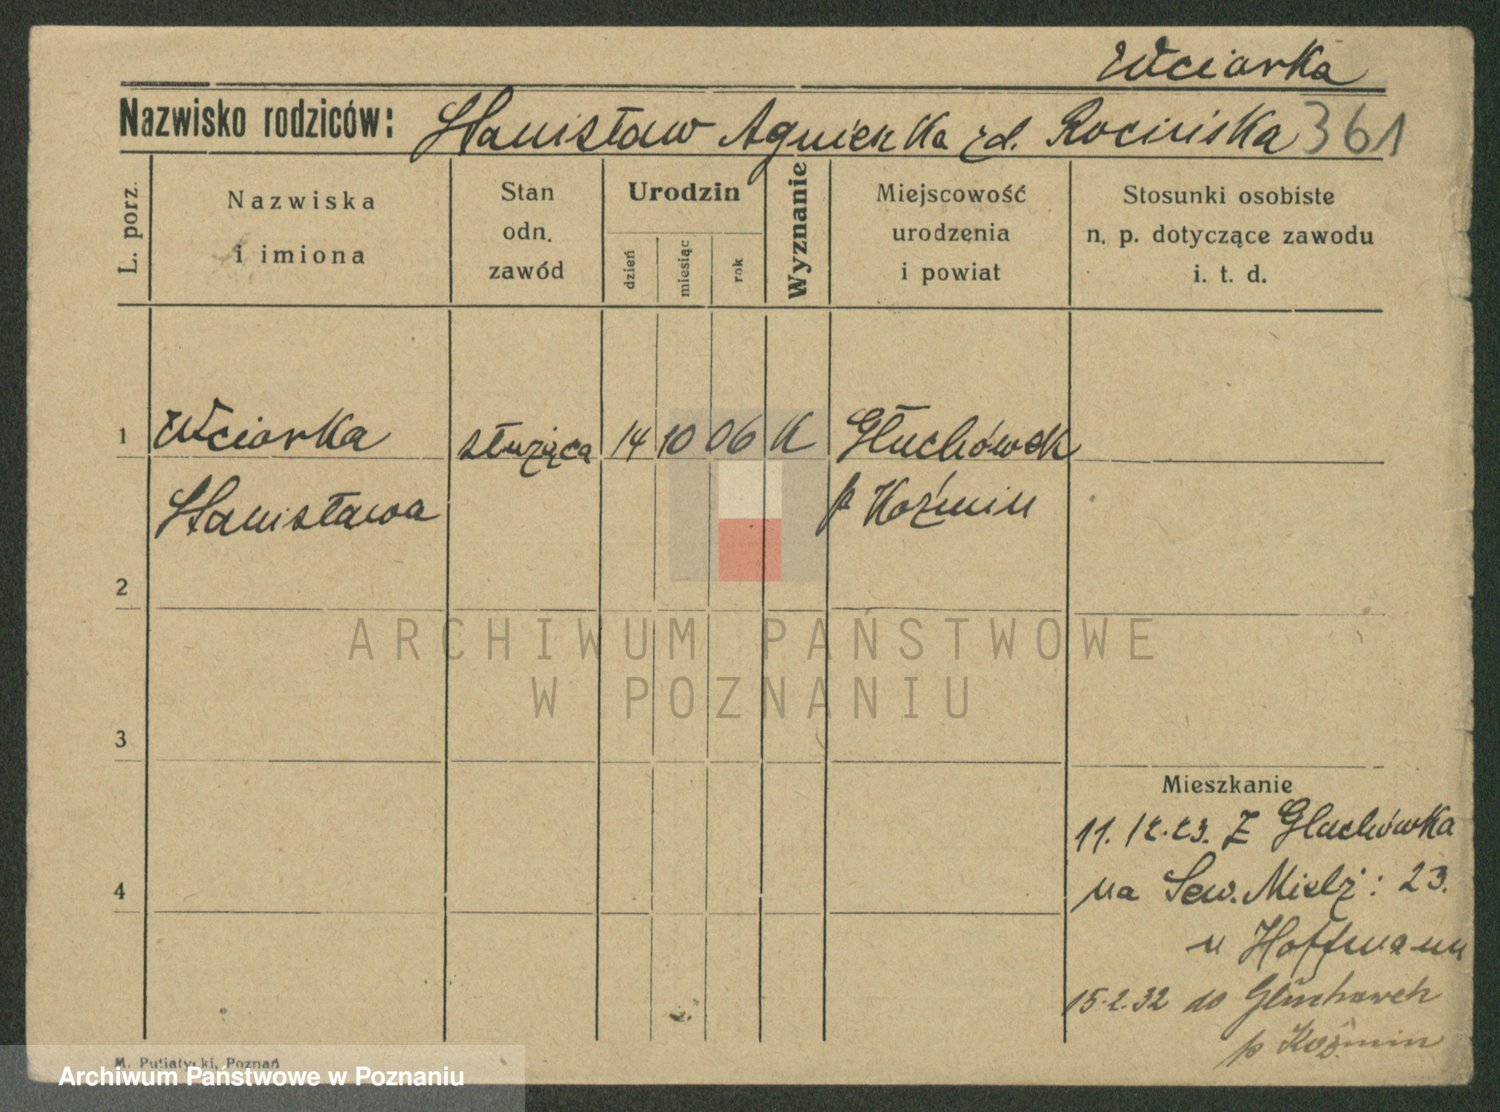 Wciorka
Nazwisko rodziców: Stanisław Agnieszka zd. Rocińska 361
L. porz.
Nazwiska
i imiona
Stan
odn.
zawód
Urodzin
dzień
miesiąc
rok
Wyznanie
Miejscowość
urodzenia
i powiat
Stosunki osobiste
n. p. dotyczące zawodu
i. t. d.
1 Wciorka służąca 14 10 06 K Głuchówek
Stanisława p Koźmin
2
ARCHIWUM PAŃSTWOWE
W POZNANIU
3
Mieszkanie
11. 12. 23. Z Głuchówka
4
na Sew. Mielż: 23.
u Hoffmann
15.2.32 do Głuchówek
p Koźmin
M. Putiatycki, Poznań
Archiwum Państwowe w Poznaniu